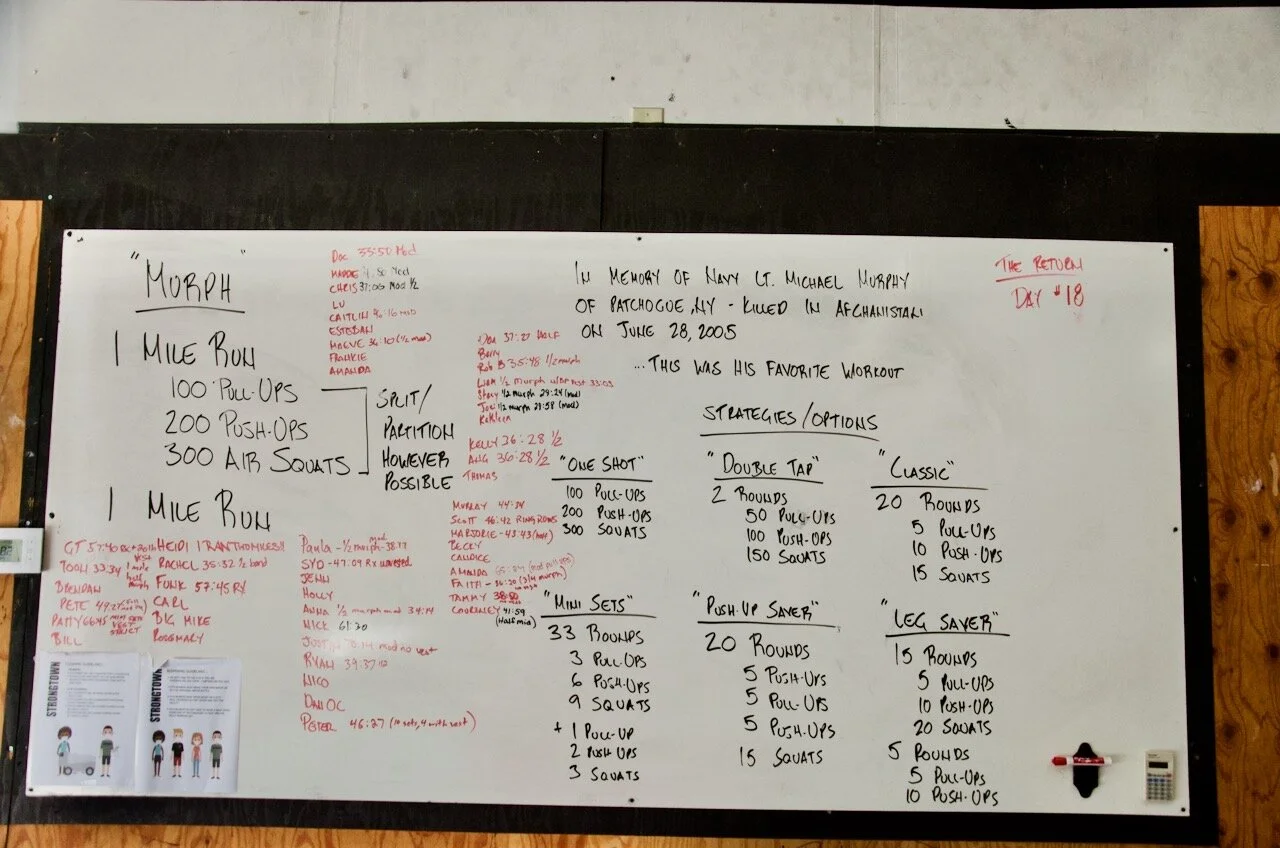 "MURPH"
1 MILE RUN
100 PULL-UPS
200 PUSH-UPS
300 AIR SQUATS
SPLIT/
PARTITION
HOWEVER
POSSIBLE
1 MILE RUN
Doc 33:50 Mod
CHRIS 37:06 Mod 1/2
LU
CAITLIN
ESTEBAN
MAEVE 36:10 (1/2 mod)
FRANKIE
AMANDA
37:27 HALF
Barry
Rob B 35:48 1/2 murph
Liam 1/2 murph
Stacy 1/2 murph 29:24 (mod)
1/2 murph 29:58 (mod)
Kathleen
KELLY 36:28 1/2
ANG 36:28 1/2
THOMAS
MURRAY
SCOTT 46:42 RING ROWS
MARJORIE - 43:43
BECKY
CANDICE
AMANDA
FAITH - 36:20 (3/4 murph)
TAMMY
COURTNEY 41:59
GT 57:40
TOON 33:34
BRENDAN
PETE 49:27
PATTY 66:45
BILL
HEIDI
RACHEL 35:32 1/2 band
FUNK 57:45 RX
CARL
BIG MIKE
ROSEMARY
Paula - 1/2 murph mod
SYD - 47:09 Rx unvested
JENN
HOLLY
ANNA 1/2 murph mod 34:14
NICK 61:30
mod no vest
RYAN 39:37
NICO
DAN OC
PETER 46:27 (10 sets, 4 with vest)
STRONGTOWN
STRONGTOWN
IN MEMORY OF NAVY LT. MICHAEL MURPHY
OF PATCHOGUE, NY - KILLED IN AFGHANISTAN
ON JUNE 28, 2005
...THIS WAS HIS FAVORITE WORKOUT
THE RETURN
DAY #18
STRATEGIES/OPTIONS
"ONE SHOT"
100 PULL-UPS
200 PUSH-UPS
300 SQUATS
"DOUBLE TAP"
2 ROUNDS
50 PULL-UPS
100 PUSH-UPS
150 SQUATS
"CLASSIC"
20 ROUNDS
5 PULL-UPS
10 PUSH-UPS
15 SQUATS
"MINI SETS"
33 ROUNDS
3 PULL-UPS
6 PUSH-UPS
9 SQUATS
+ 1 PULL-UP
2 PUSH UPS
3 SQUATS
"PUSH-UP SAVER"
20 ROUNDS
5 PUSH-UPS
5 PULL-UPS
5 PUSH-UPS
15 SQUATS
"LEG SAVER"
15 ROUNDS
5 PULL-UPS
10 PUSH-UPS
20 SQUATS
5 ROUNDS
5 PULL-UPS
10 PUSH-UPS